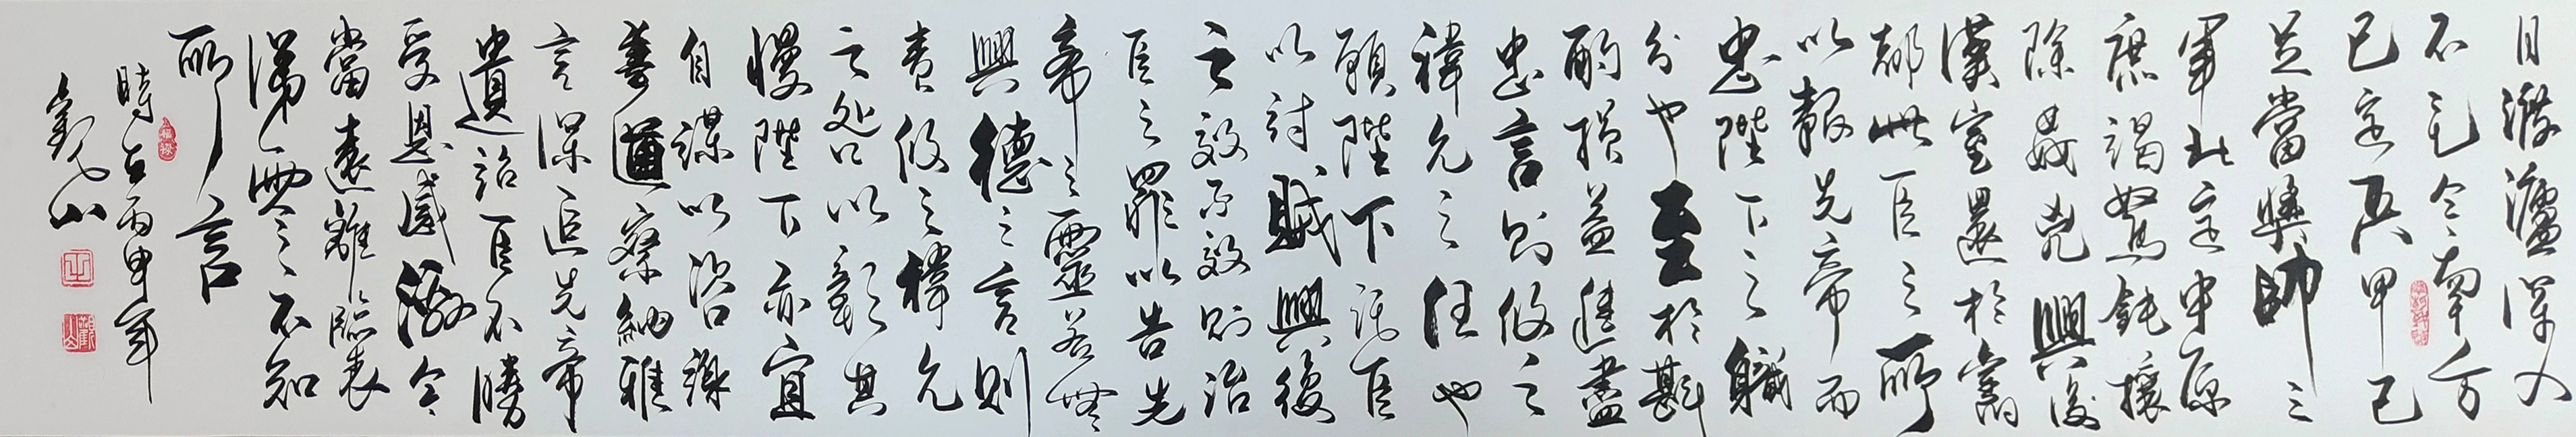 月渡瀘深入
不毛今南方
已定兵甲已
足當獎帥三
軍北定中原
庶竭駑鈍攘
除姦兇興復
漢室還於舊
都此臣之所
以報先帝而
忠陛下之職
分也至於斟
酌損益進盡
忠言則攸之
禕允之任也
願陛下託臣
以討賊興復
之效不效則治
臣之罪以告先
帝之靈若無
興德之言則
責攸之禕允
之咎以彰其
慢陛下亦宜
自謀以諮諏
善道察納雅
言深追先帝
遺詔臣不勝
受恩感激今
當遠離臨表
涕零不知
所言
時在丙申年
觀山